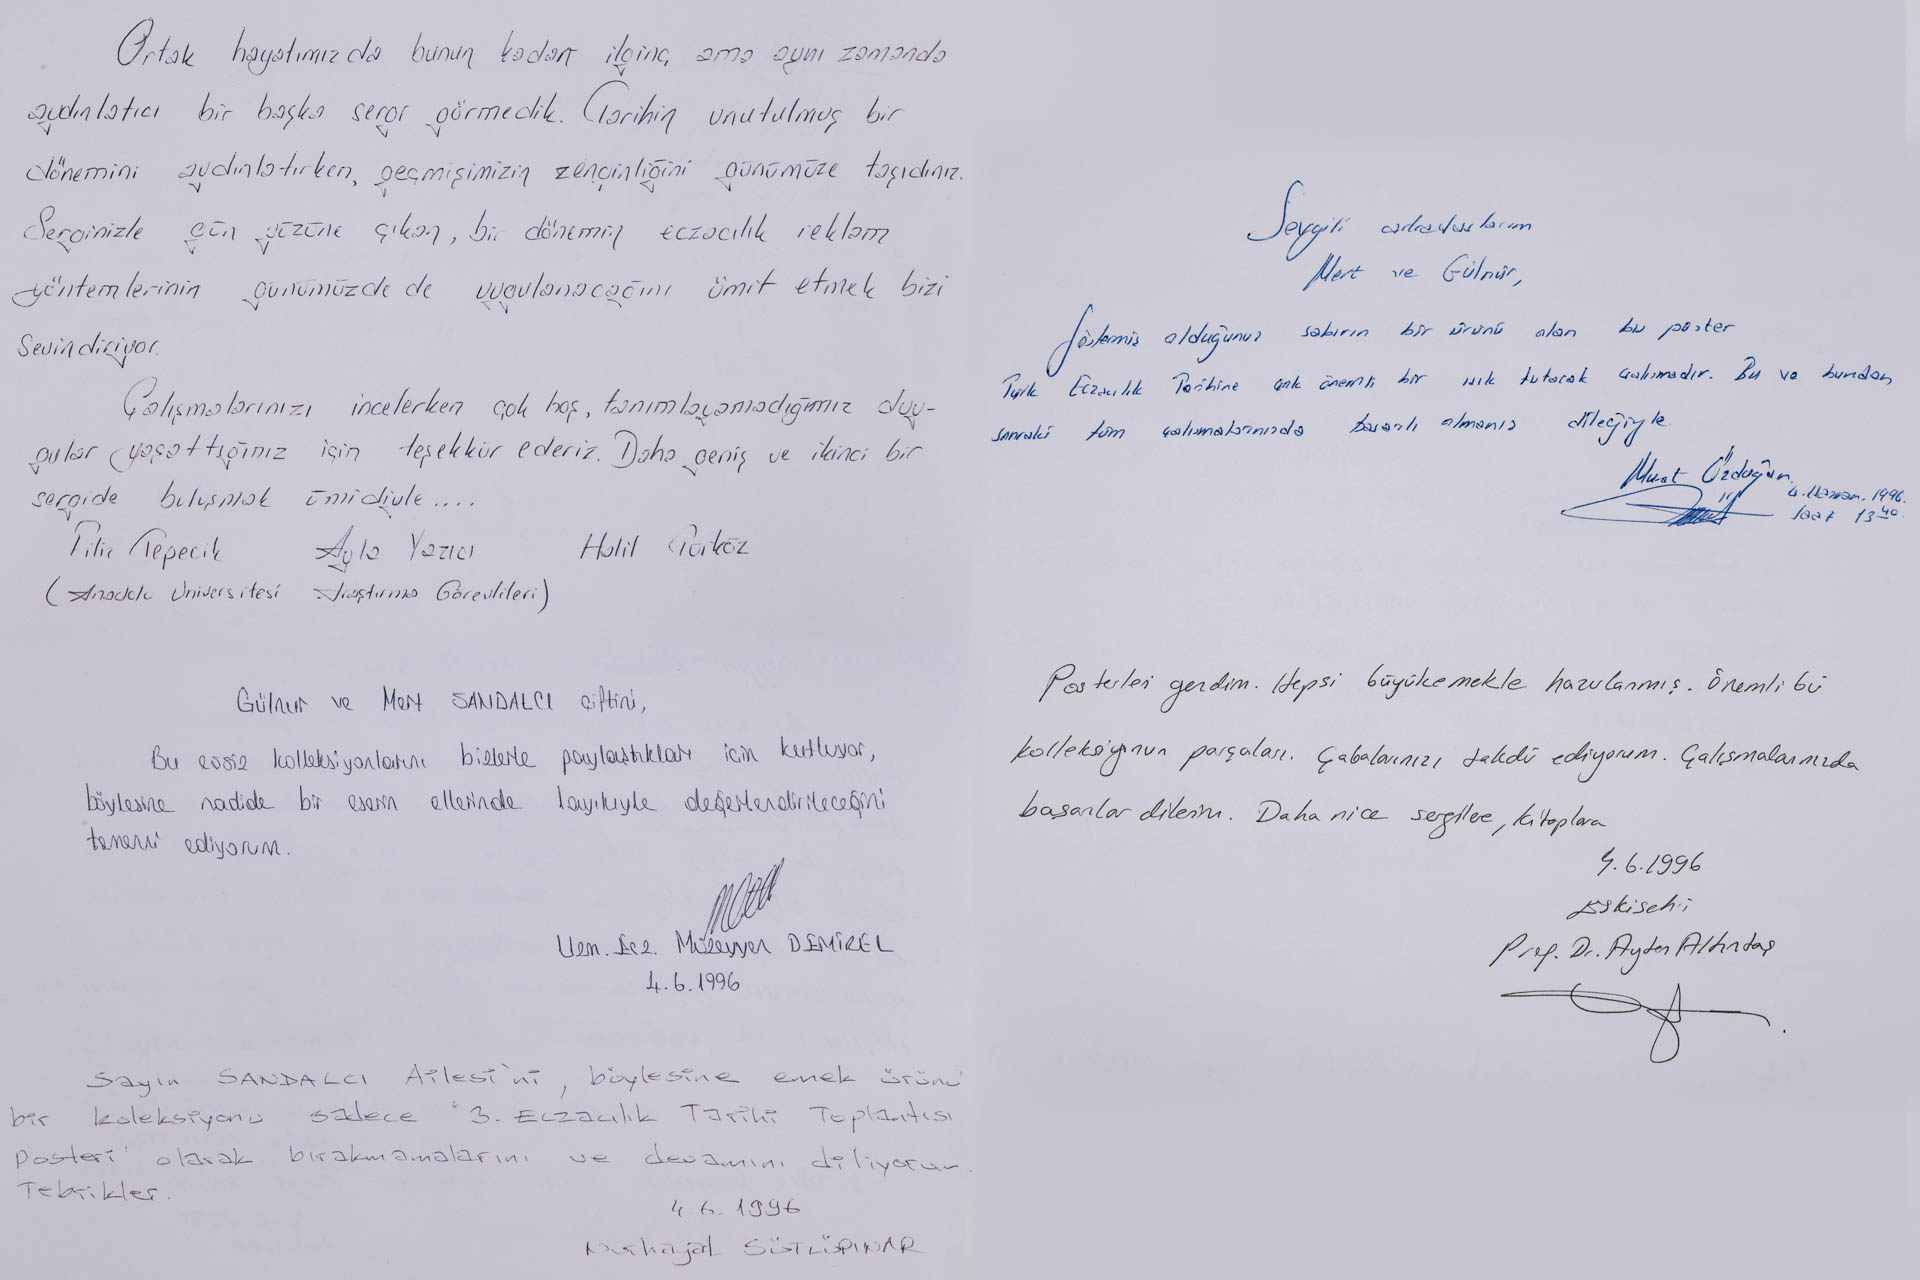 Ortak hayatımızda bunun kadar ilginç ama aynı zamanda
aydınlatıcı bir başka sergi görmedik. Tarihin unutulmuş bir
dönemini aydınlatırken, geçmişimizin zenginliğini günümüze taşıdınız.
Serginizle gün yüzüne çıkan, bir dönemin eczacılık reklam
yöntemlerinin günümüzde de uygulanacağını ümit etmek bizi
sevindiriyor.
Çalışmalarınızı incelerken çok hoş, tanımlayamadığımız duy-
gular yaşattığınız için teşekkür ederiz. Daha geniş ve ikinci bir
sergide buluşmak ümidiyle....
Filiz Tepecik Ayla Yazıcı Halil Türköz
(Anadolu Üniversitesi Araştırma Görevlileri)
Gülnur ve Mert SANDALCI çiftini,
Bu eşsiz kolleksiyonlarını bizlerle paylaştıkları için kutluyor,
böylesine nadide bir eserin ellerinde layıkıyla değerlendirileceğini
temenni ediyorum.
Uzm. Ecz. Müzeyyen DEMİREL
4.6.1996
Sayın SANDALCI Ailesi'ni, böylesine emek ürünü
bir koleksiyonu sadece "3. Eczacılık Tarihi Toplantısı
Posteri" olarak bırakmamalarını ve devamını diliyorum.
Tebrikler.
4.6.1996
Nurhayat SÜTLÜPINAR
Sevgili arkadaşlarım
Mert ve Gülnür,
Göstermiş olduğunuz sabırın bir ürünü olan bu poster
Türk Eczacılık Tarihine çok önemli bir ışık tutacak çalışmadır. Bu ve bundan
sonraki tüm çalışmalarınızda başarılı olmanız dileğiyle.
Murat Özdoğan
4. Haziran. 1996.
Saat 13 40
Posterleri gezdim. Hepsi büyük emekle hazırlanmış. Önemli bir
kolleksiyonun parçaları. Çabalarınızı takdir ediyorum. Çalışmalarınızda
başarılar dilerim. Daha nice sergilere, kitaplara
4.6.1996
Eskişehir
Prof. Dr. Ayten Altıntaş